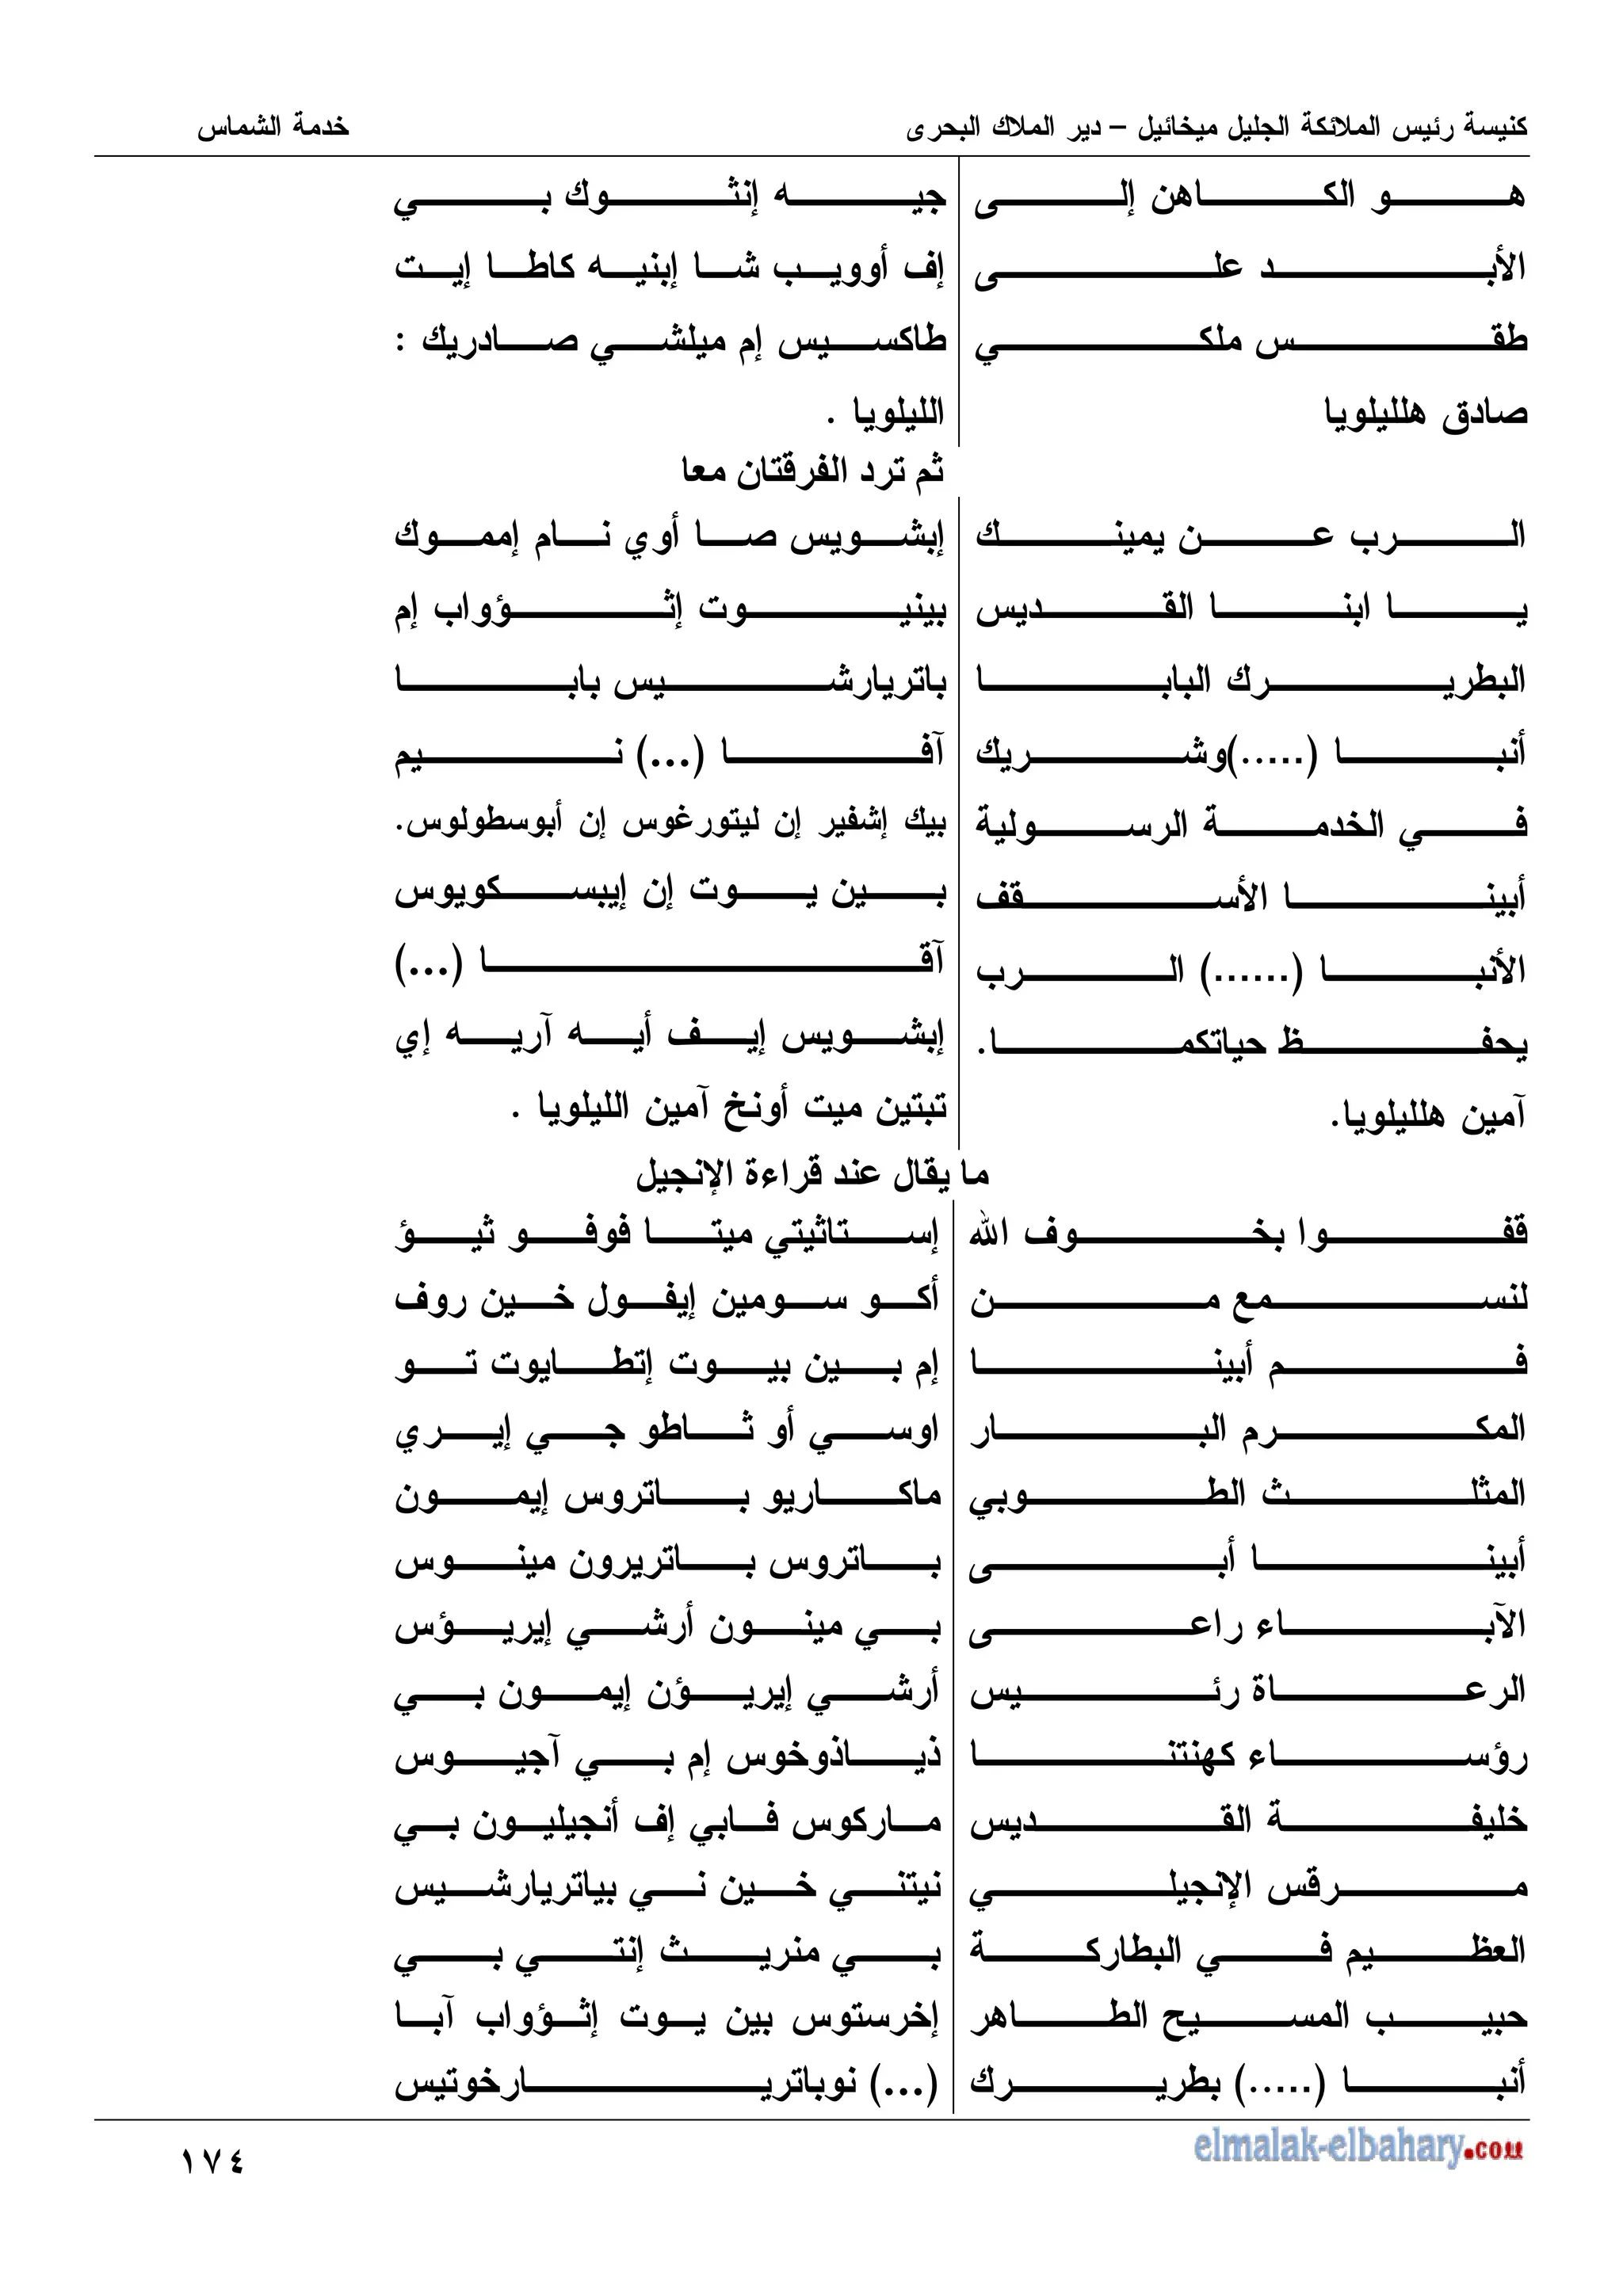 كنيسة رئيس الملائكة الجليل ميخائيل – دير الملاك البحرى
خدمة الشماس
هو الكاهن إلى
الأبد على
طقس ملكي
صادق هلليلويا
جيه إنثوك بي
إف أوويب شا إبنيه كاطا إيت
طاكسيس إم ميلشي صادريك :
الليلويا .
ثم ترد الفرقتان معا
الرب عن يمينك
يا ابنا القديس
البطريرك البابا
أنبا (.....)وشريك
في الخدمة الرسولية
أبينا الأسقف
الأنبا (......) الرب
يحفظ حياتكما.
آمين هلليلويا.
إبشويس صا أوي نام إمموك
بينيوت إثؤواب إم
باتريارشيس بابا
آفا (...) نيم
بيك إشفير إن ليتورغوس إن أبوسطولوس.
بين يوت إن إيبسكوبوس
آقا (...)
إبشويس إيف أيه آريه إي
تبتين ميت أونخ آمين الليلويا .
ما يقال عند قراءة الإنجيل
قفوا بخوف الله
لنسمع من
فم أبينا
المكرم البار
المثلث الطوبي
أبينا أبى
الآباء راعى
الرعاة رئيس
رؤساء كهنتنا
خليفة القديس
مرقس الإنجيلي
العظيم في البطاركة
حبيب المسيح الطاهر
أنبا (.....) بطريرك
إستاثيتي ميتا فوفو ثيؤ
أكو سومين إيفول خين روف
إم بين بيوت إتطايوت تو
اوسي أو ثاطو جي إيري
ماكاريو باتروس إيمون
باتروس باتريرون مينوس
بي مينون أرشي إيريؤس
أرشي إيريؤن إيمون بي
ذياذوخوس إم بي آجيوس
ماركوس فابي إف أنجيليون بي
نيتني خين ني بياتريارشيس
بي منريث إنتي بي
إخرستوس بين يوت إثؤواب آبا
(...) نوباتريارخوتيس
elmalak-elbahary.com
١٧٤